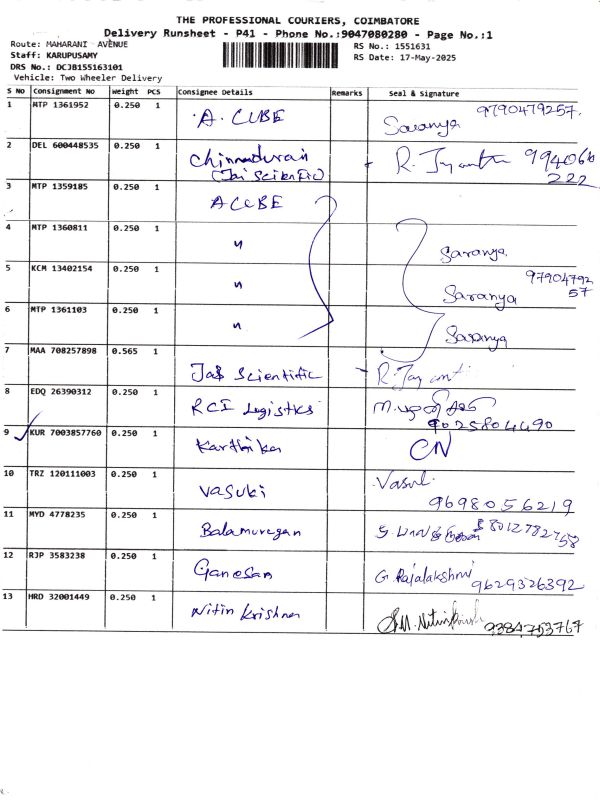 THE PROFESSIONAL COURIERS, COIMBATORE
Delivery Runsheet - P41 - Phone No.:9047080280 - Page No.:1
Route: MAHARANI AVENUE RS No.: 1551631
Staff: KARUPUSAMY RS Date: 17-May-2025
DRS No.: DCJB155163101
Vehicle: Two Wheeler Delivery
S No Consignment No Weight PCS Consignee Details Remarks Seal & Signature
1 MTP 1361952 0.250 1 A. CUBE Saranya 9790479257
2 DEL 600448535 0.250 1 Chinnadurai (Jai Scientific) R. Jayanthi 994066
222
3 MTP 1359185 0.250 1 ACUBE
4 MTP 1360811 0.250 1 " Saranya
5 KCM 13402154 0.250 1 " Saranya 97904792
57
6 MTP 1361103 0.250 1 " Saranya
7 MAA 708257898 0.565 1 Jai Scientific R. Jayanti
8 EDQ 26390312 0.250 1 RCI Logistics
9025804490
9 KUR 7003857760 0.250 1 Karthika CN
10 TRZ 120111003 0.250 1 Vasuki Vasuk
9698056219
11 MYD 4778235 0.250 1 Balamurugan 8012782758
12 RJP 3583238 0.250 1 Ganesan G. Rajalakshmi 9629326392
13 HRD 32001449 0.250 1 Nitin Krishnan 9384753767